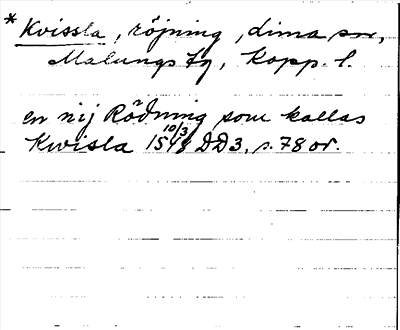 * Kvissla, röjning, Lima sn,
Malungs tg, Kopp. l.
en nij Rödning som kallas
Kwisla 10/3 1548 DD3, s. 78 or.